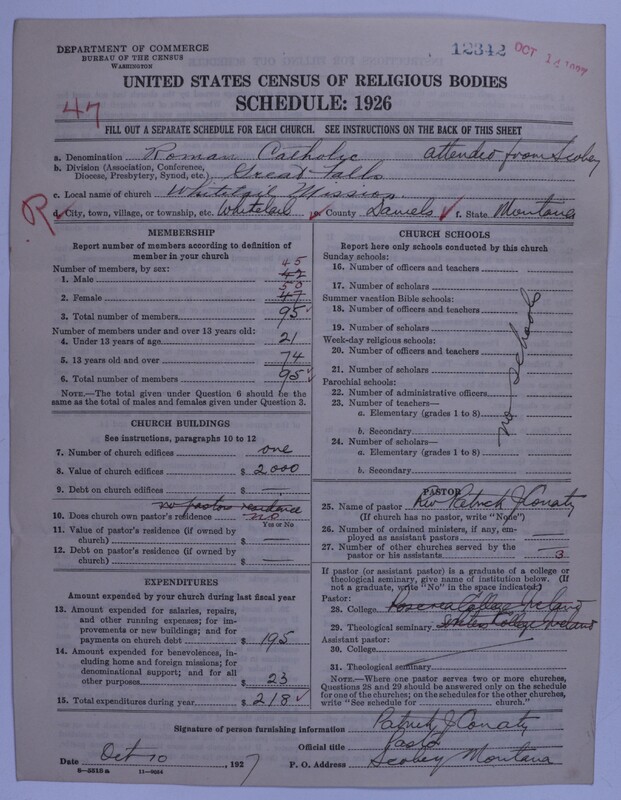 DEPARTMENT OF COMMERCE
BUREAU OF THE CENSUS
WASHINGTON
12342 OCT
UNITED STATES CENSUS OF RELIGIOUS BODIES
SCHEDULE: 1926
47
FILL OUT A SEPARATE SCHEDULE FOR EACH CHURCH. SEE INSTRUCTIONS ON THE BACK OF THIS SHEET
a. Denomination Roman Catholic attended from Scobey
b. Division (Association, Conference, Diocese, Presbytery, Synod, etc.) Great Falls
c. Local name of church Whitetail Mission
R d. City, town, village, or township, etc. Whitetail e. County Daniels f. State Montana
MEMBERSHIP
Report number of members according to definition of
member in your church
Number of members, by sex:
45
1. Male 42
50
2. Female 47
3. Total number of members 95
Number of members under and over 13 years old:
4. Under 13 years of age 21
5. 13 years old and over 74
6. Total number of members 95
NOTE.—The total given under Question 6 should be
the same as the total of males and females given under Question 3.
CHURCH BUILDINGS
See instructions, paragraphs 10 to 12
7. Number of church edifices one
8. Value of church edifices $ 2000
9. Debt on church edifices $ —
no pastors residence
10. Does church own pastor's residence no
Yes or No
11. Value of pastor's residence (if owned by
church) $ —
12. Debt on pastor's residence (if owned by
church) $ —
EXPENDITURES
Amount expended by your church during last fiscal year
13. Amount expended for salaries, repairs,
and other running expenses; for im-
provements or new buildings; and for
payments on church debt $ 195
14. Amount expended for benevolences, in-
cluding home and foreign missions; for
denominational support; and for all
other purposes $ 23
15. Total expenditures during year $ 218
CHURCH SCHOOLS
Report here only schools conducted by this church
Sunday schools:
16. Number of officers and teachers
17. Number of scholars
Summer vacation Bible schools:
18. Number of officers and teachers
19. Number of scholars
Week-day religious schools:
20. Number of officers and teachers
21. Number of scholars
Parochial schools:
22. Number of administrative officers
23. Number of teachers—
a. Elementary (grades 1 to 8)
b. Secondary
24. Number of scholars—
a. Elementary (grades 1 to 8)
b. Secondary
no schools
PASTOR
25. Name of pastor Rev Patrick J Conaty
(If church has no pastor, write "None")
26. Number of ordained ministers, if any, em-
ployed as assistant pastors —
27. Number of other churches served by the
pastor or his assistants 3
If pastor (or assistant pastor) is a graduate of a college or
theological seminary, give name of institution below. (If
not a graduate, write "No" in the space indicated.)
Pastor:
28. College Roscrea College Ireland
29. Theological seminary College Ireland
Assistant pastor:
30. College
31. Theological seminary
NOTE.—Where one pastor serves two or more churches,
Questions 28 and 29 should be answered only on the schedule
for one of the churches; on the schedules for the other churches,
write "See schedule for church."
Signature of person furnishing information Patrick J Conaty
Official title Pastor
Date Oct 10, 1927 P. O. Address Scobey Montana
8—5518 a 11—9054